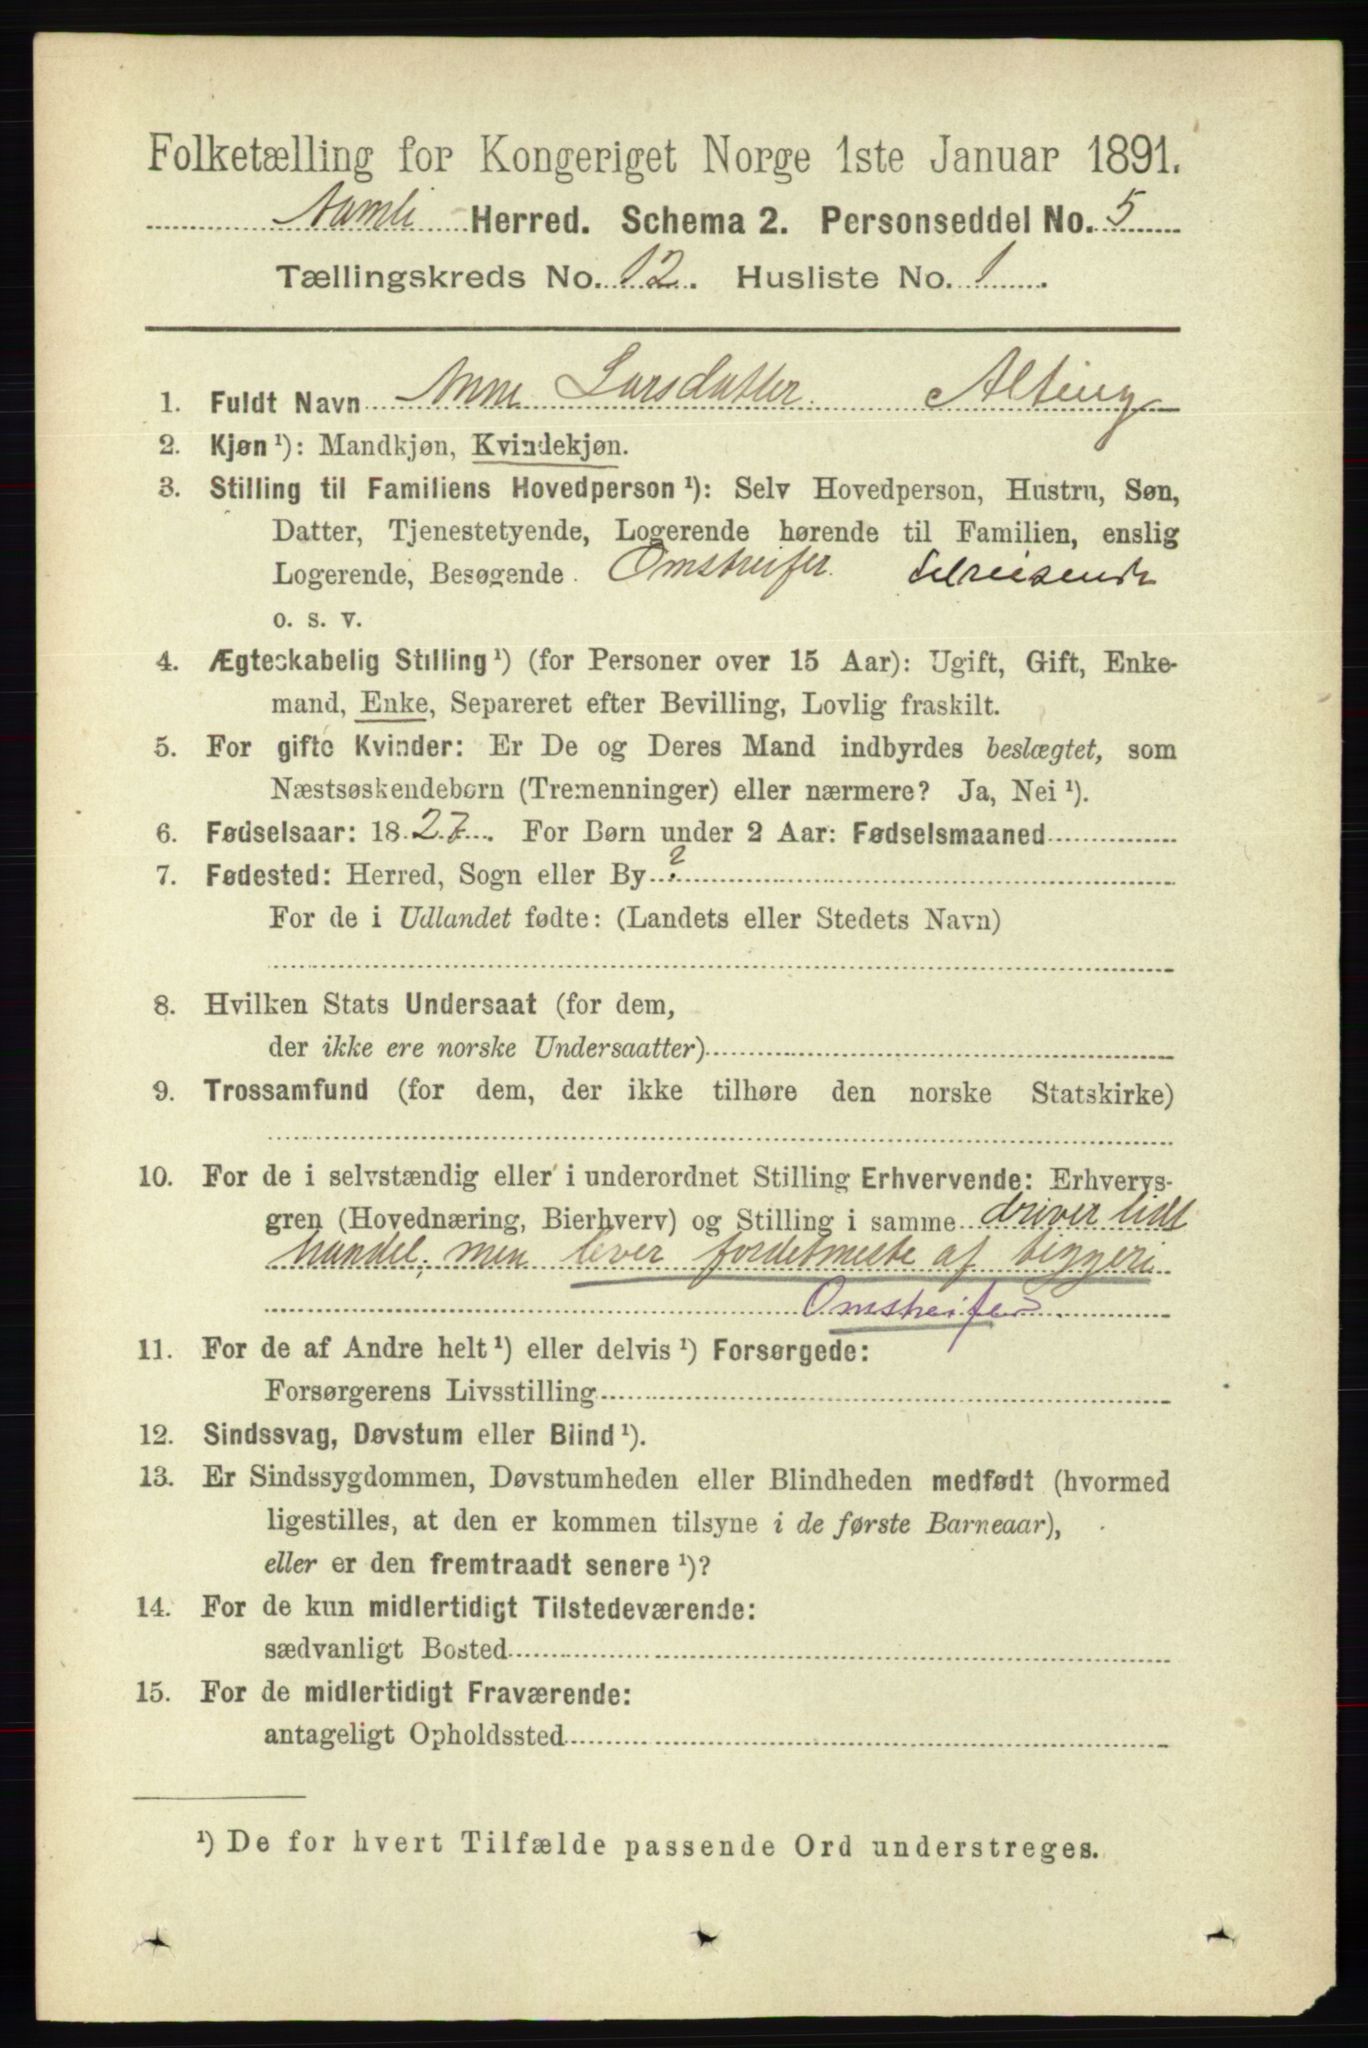 Folketælling for Kongeriget Norge 1ste Januar 1891.
Aamli Herred. Schema 2. Personseddel No. 5
Tællingskreds No. 12. Husliste No. 1.
1. Fuldt Navn Anne Larsdatter. Alting
2. Kjøn ¹): Mandkjøn, Kvindekjøn.
3. Stilling til Familiens Hovedperson ¹): Selv Hovedperson, Hustru, Søn,
Datter, Tjenestetyende, Logerende hørende til Familien, enslig
Logerende, Besøgende Omstreifer.
o. s. v.
4. Ægteskabelig Stilling ¹) (for Personer over 15 Aar): Ugift, Gift, Enke-
mand, Enke, Separeret efter Bevilling, Lovlig fraskilt.
5. For gifte Kvinder: Er De og Deres Mand indbyrdes beslægtet, som
Næstsøskendebørn (Tremenninger) eller nærmere? Ja, Nei ¹).
6. Fødselsaar: 1827. For Børn under 2 Aar: Fødselsmaaned
7. Fødested: Herred, Sogn eller By ?
For de i Udlandet fødte: (Landets eller Stedets Navn)
8. Hvilken Stats Undersaat (for dem,
der ikke ere norske Undersaatter)
9. Trossamfund (for dem, der ikke tilhøre den norske Statskirke)
10. For de i selvstændig eller i underordnet Stilling Erhvervende: Erhvervs-
gren (Hovednæring, Bierhverv) og Stilling i samme driver lidt
handel; men lever fordetmeste af tiggeri
Omstreifer.
11. For de af Andre helt ¹) eller delvis ¹) Forsørgede:
Forsørgerens Livsstilling
12. Sindssvag, Døvstum eller Blind ¹).
13. Er Sindssygdommen, Døvstumheden eller Blindheden medfødt (hvormed
ligestilles, at den er kommen tilsyne i de første Barneaar),
eller er den fremtraadt senere ¹)?
14. For de kun midlertidigt Tilstedeværende:
sædvanligt Bosted
15. For de midlertidigt Fraværende:
antageligt Opholdssted
¹) De for hvert Tilfælde passende Ord understreges.